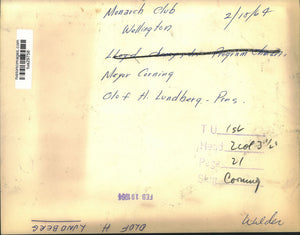 Monarch Club
Wellington
2/15/64
Meyer Corning
Olof H. Lundberg - Pres.
T U 1st
Head 2col 3 1/2
Page 21
Slug Corning
FEB 19 1964
OLOF H LUNDBERG
Walder